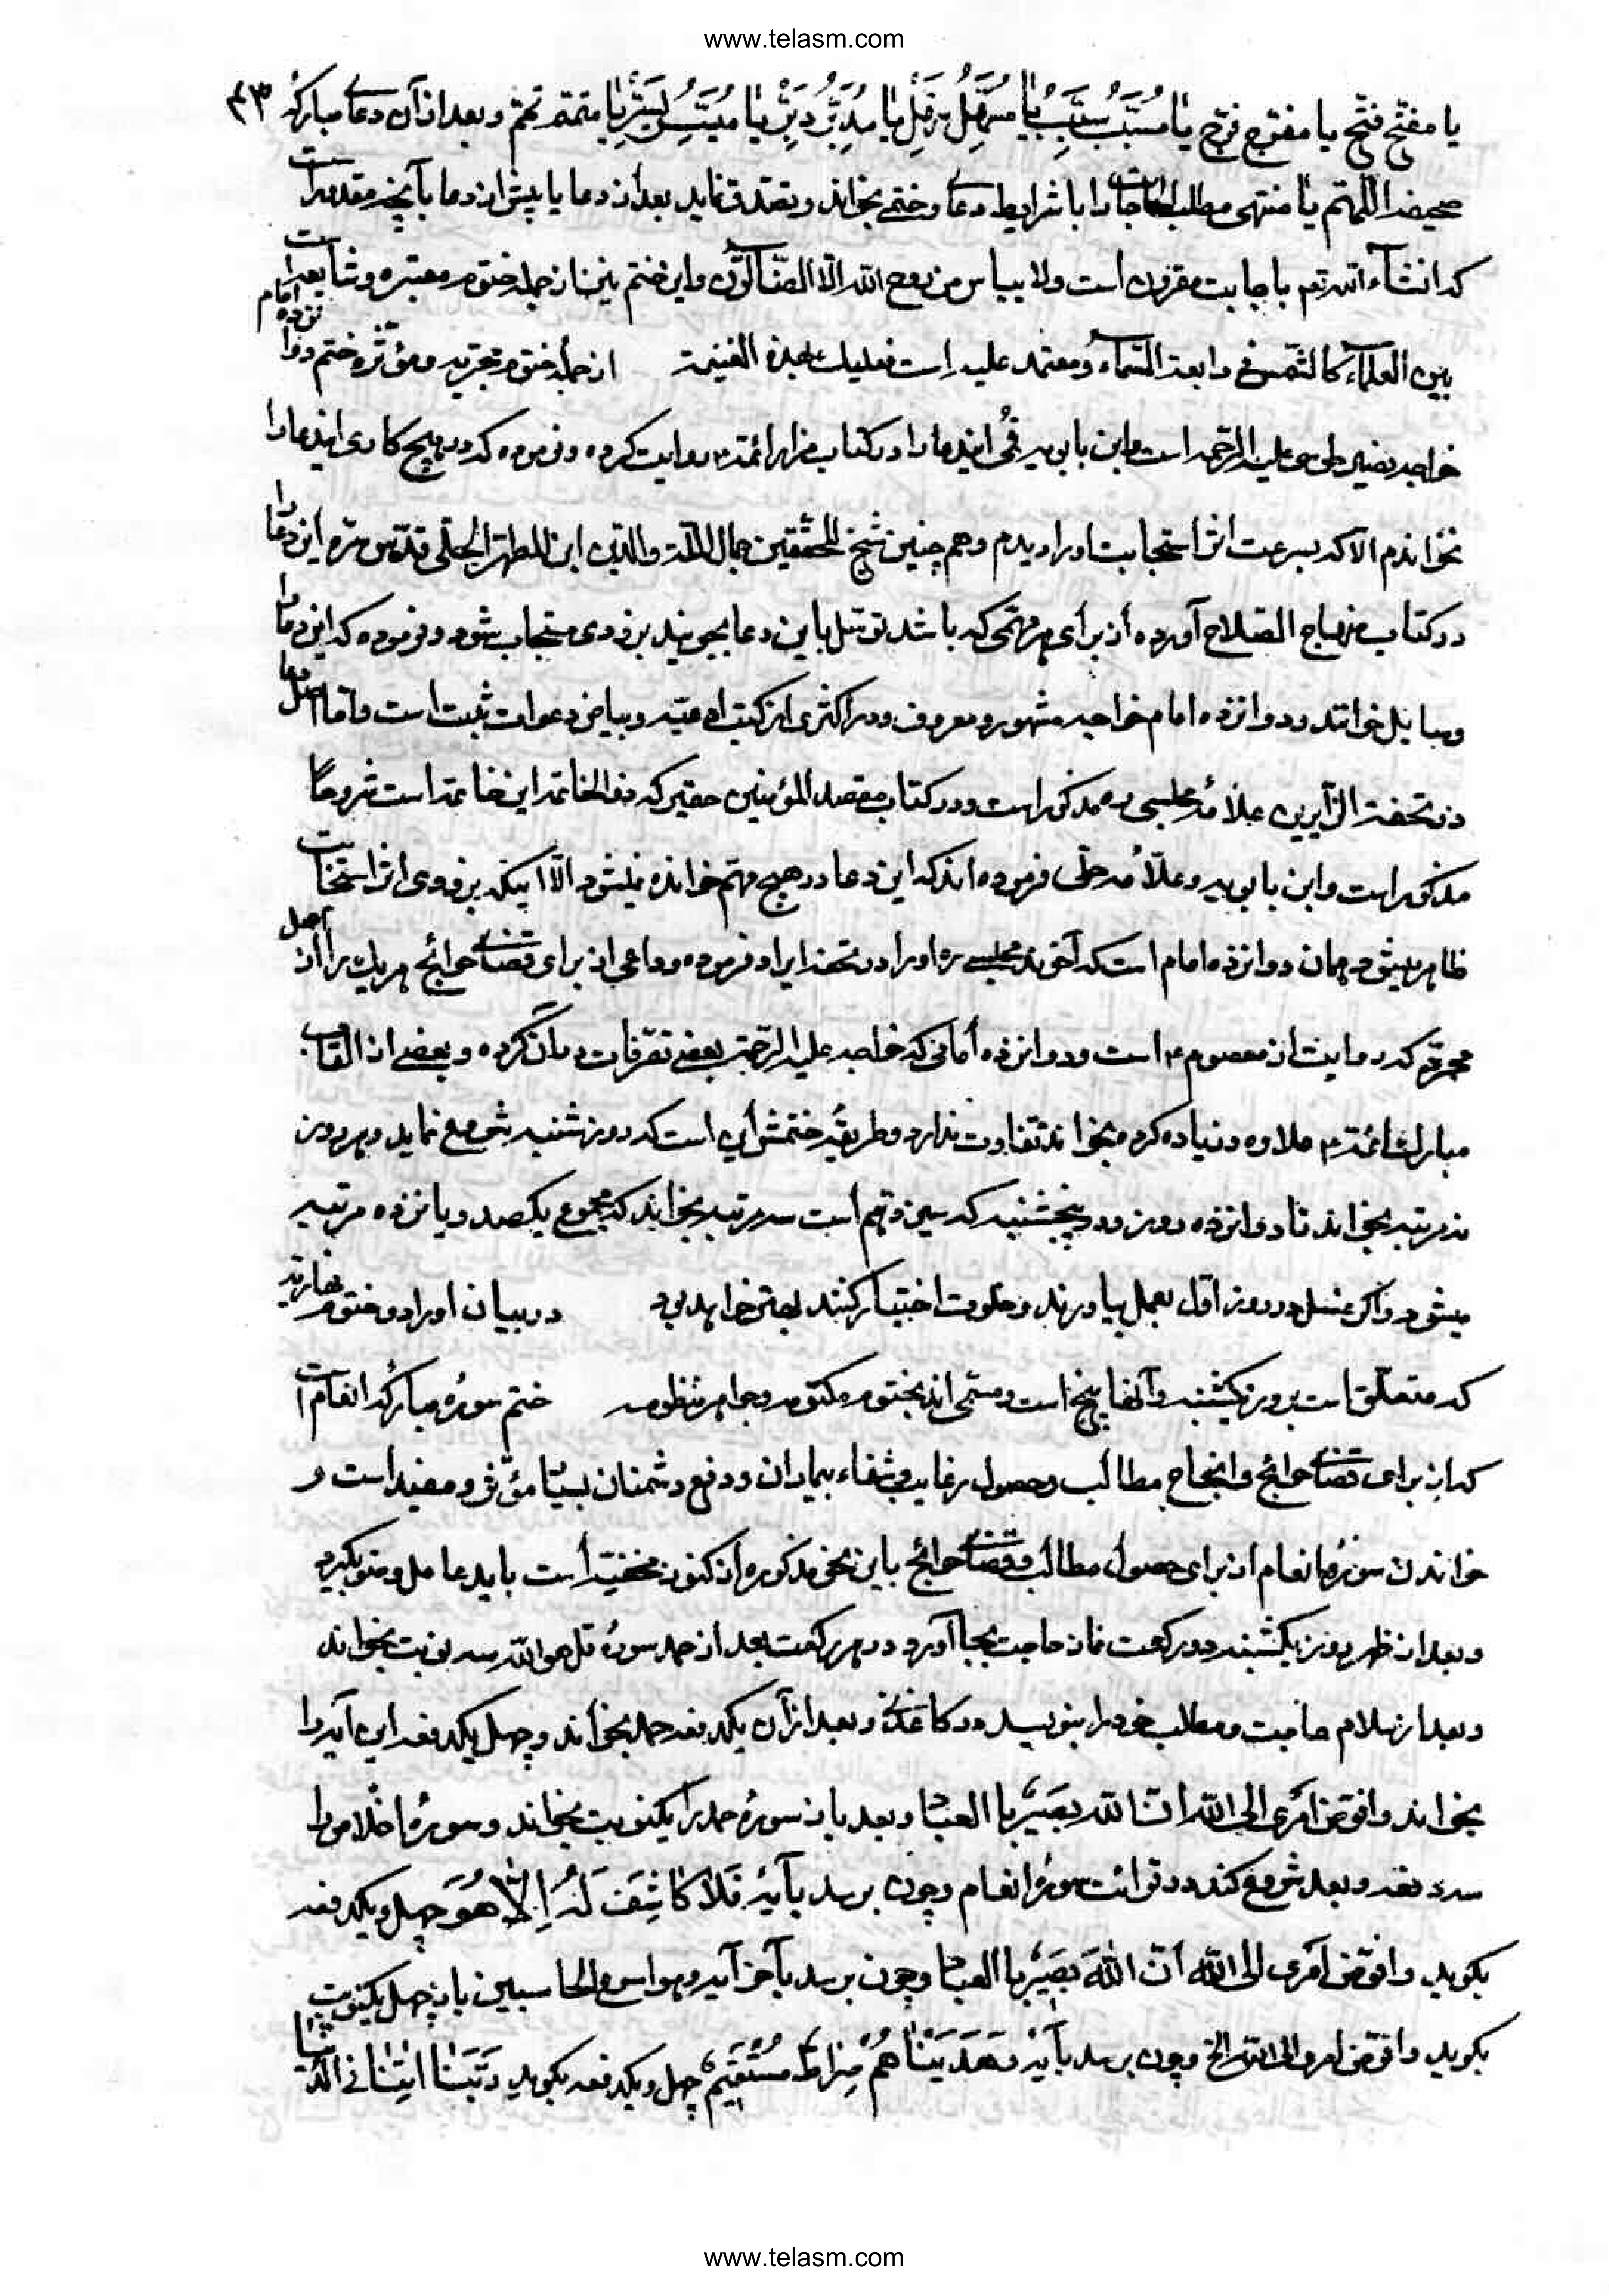 www.telasm.com
یا مفتح فتح یا مفرج فرج یا مسبب سبب یا مسهل سهل یا مدبر دبر یا میسر یسر یا متمم تمم و بعد از آن دعای مبارکه ۴۳
صحیفه اللهم یا منتهی مطلب الحاجات را با شرایط دعا و ختم بخواند و تصدق نماید بعد از دعا یا پیش از دعا بآنچه مقدور است
که انشاء الله تعم باجابت مقرون است ولا ییاس من روح الله الا الضالون و این ختم نیز از جمله ختوم معتبره و شایعه است
بین العلماء کالشمس فی رابعة السماء و معتمد علیه است فعلیک بهذه الغنیمة از جمله ختوم مجربه و مؤثره ختم دوازده امام
خواجه نصیر طوسی علیه الرحمه است و ابن بابویه قمی ایندعا را در کتاب مزار ائمه روایت کرده و فرموده که در هیچ کاری ایندعا را
نخواندم الا که بسرعت اثر استجابت او را دیدم و هم چنین شیخ المحققین جمال الملة والدین ابن المطهر الحلی قدس سره این دعا را
در کتاب منهاج الصلاح آورده از برای هر مهمی که باشد توسل باین دعا بجویند بزودی مستجاب شود و فرموده که این دعا را
وسایل خوانند و دوازده امام خواجه مشهور و معروف و در اکثری از کتب ادعیه و بیاض دعوات ثبت است و اما اصل دعا
در تحفة الزایرین علامه مجلسی ره مذکور است و در کتاب مقصد المؤمنین حقیر که فوالخاتمه این خاتمه است مشروحا
مذکور است و ابن بابویه و علامه حلی فرموده اند که این دعا در هیچ مهم خوانده نمیشود الا اینکه بزودی اثر استجابت
ظاهر میشود همان دوازده امام است که آخوند مجلسی ره او را در تحفه ایراد فرموده و داعی از برای قضای حوائج هر یک را از اصل
مجرب که روایت از معصوم ۴ است و دوازده امامی که خواجه علیه الرحمه بعضی تصرفات در آن کرده و بعضی از القاب
مبارک ائمه ۴ علاوه و زیاده کرده بخواند تفاوت ندارد و طریقه ختمش این است که روز شنبه شروع نماید و هر روز
نه مرتبه بخواند تا دوازده روز و در پنجشنبه که سیزدهم است سه مرتبه بخواند که مجموع یکصد و یازده مرتبه
میشود و اگر غسل در روز اول بعمل بیاورند و خلوت اختیار کنند بهتر خواهد بود در بیان اوراد و ختوم
که متعلق است بروز یکشنبه و آنها پنج است و مسمی اند بختوم مکتومه و جواهر منظومه ختم سوره مبارکه انعام است
که از برای قضای حوائج و انجاح مطالب و حصول رغایب و شفاء بیماران و دفع دشمنان بسیار مؤثر و مفید است و
خواندن سوره انعام از برای حصول مطالب و قضای حوائج باین نحو مذکوره از کنوز مخفیه است باید عامل وضو بگیرد
و بعد از ظهر روز یکشنبه دو رکعت نماز حاجت بجا آورد در هر رکعت بعد از حمد سوره قل هو الله سه نوبت بخواند
و بعد از سلام حاجت و مطلب خود را بنویسد در کاغذی و بعد از آن یکدفعه حمد بخواند و چهل یکدفعه این آیه را
بخواند وافوض امری الی الله ان الله بصیر بالعباد و بعد باز سوره حمد را یکنوبت بخواند و سوره اخلاص را
سه دفعه و بعد شروع کند در قرائت سوره انعام و چون برسد بآیه فلا کاشف له الا هو چهل و یکدفعه
بگوید وافوض امری الی الله ان الله بصیر بالعباد و چون برسد بآخر آیه وهو اسرع الحاسبین باز چهل یکنوبت
بگوید وافوض امری الی الله الخ و چون برسد بآیه وهدیناهم صراط مستقیم چهل و یکدفعه بگوید ربنا اتنا فی الدنیا
www.telasm.com